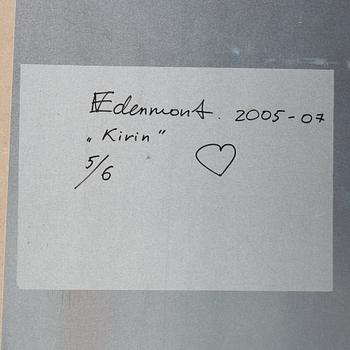 Edenmont. 2005-07
„Kirin"
5/6